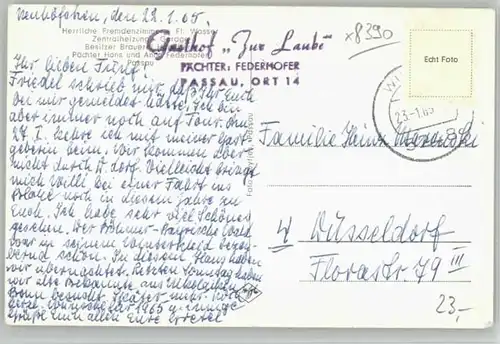 Neuhöfchen, den 22.1.65.
Herrliche Fremdenzimmer Fl. Wasser
Zentralheizung Garage
Besitzer Brauerei
Pächter Hans und Anna Federhofer
Passau
Gasthof „Zur Laube"
PÄCHTER: FEDERHOFER
PASSAU, ORT 14
x8390
Echt Foto
23.-1.65
Ihr lieben Fünf!
Friedel schrieb mir, daß Ihr Euch
bei mir gemeldet hättet. Ich bin
aber immer noch auf Tour. Am
27. I. kehre ich mit meiner
heim. Wir kommen aber
nicht durch D.dorf. Vielleicht bringt
mich Willi bei einer Fahrt ins
noch in diesem Jahre zu
Euch. Ich habe sehr viel Schönes
gesehen. Der Böhmer-Bayrische Wald
war in seinem Winterkleid bezau-
bernd schön. In diesem Haus haben
wir übernachtet. Letzten Sonntag haben
wir alte Bekannte aus
Bonn besucht.
1965
grüßt Euch allen Eure
Familie Heinz
4 Düsseldorf
Florastr. 79 III
23,-